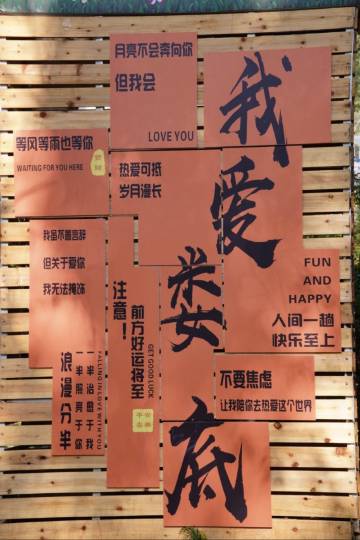 月亮不会奔向你
但我会
LOVE YOU
我爱娄底
等风等雨也等你
WAITING FOR YOU HERE
热爱可抵
岁月漫长
我虽不善言辞
但关于爱你
我无法掩饰
注意！
前方好运将至
GET GOOD LUCK
FUN
AND
HAPPY
人间一趟
快乐至上
浪漫分半
一半治愈于我
一半照亮于你
FALLING IN LOVE WITH YOU
不要焦虑
让我陪你去热爱这个世界